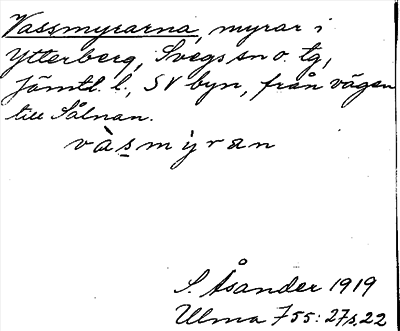 Vassmyrarna, myrar i
Ytterberg, Svegs sn o. tg,
Jämtl. l., SV byn, från vägen
till Sålnan.
vàs̲mýran
S. Åsander 1919
Ulma 755:27 s. 22